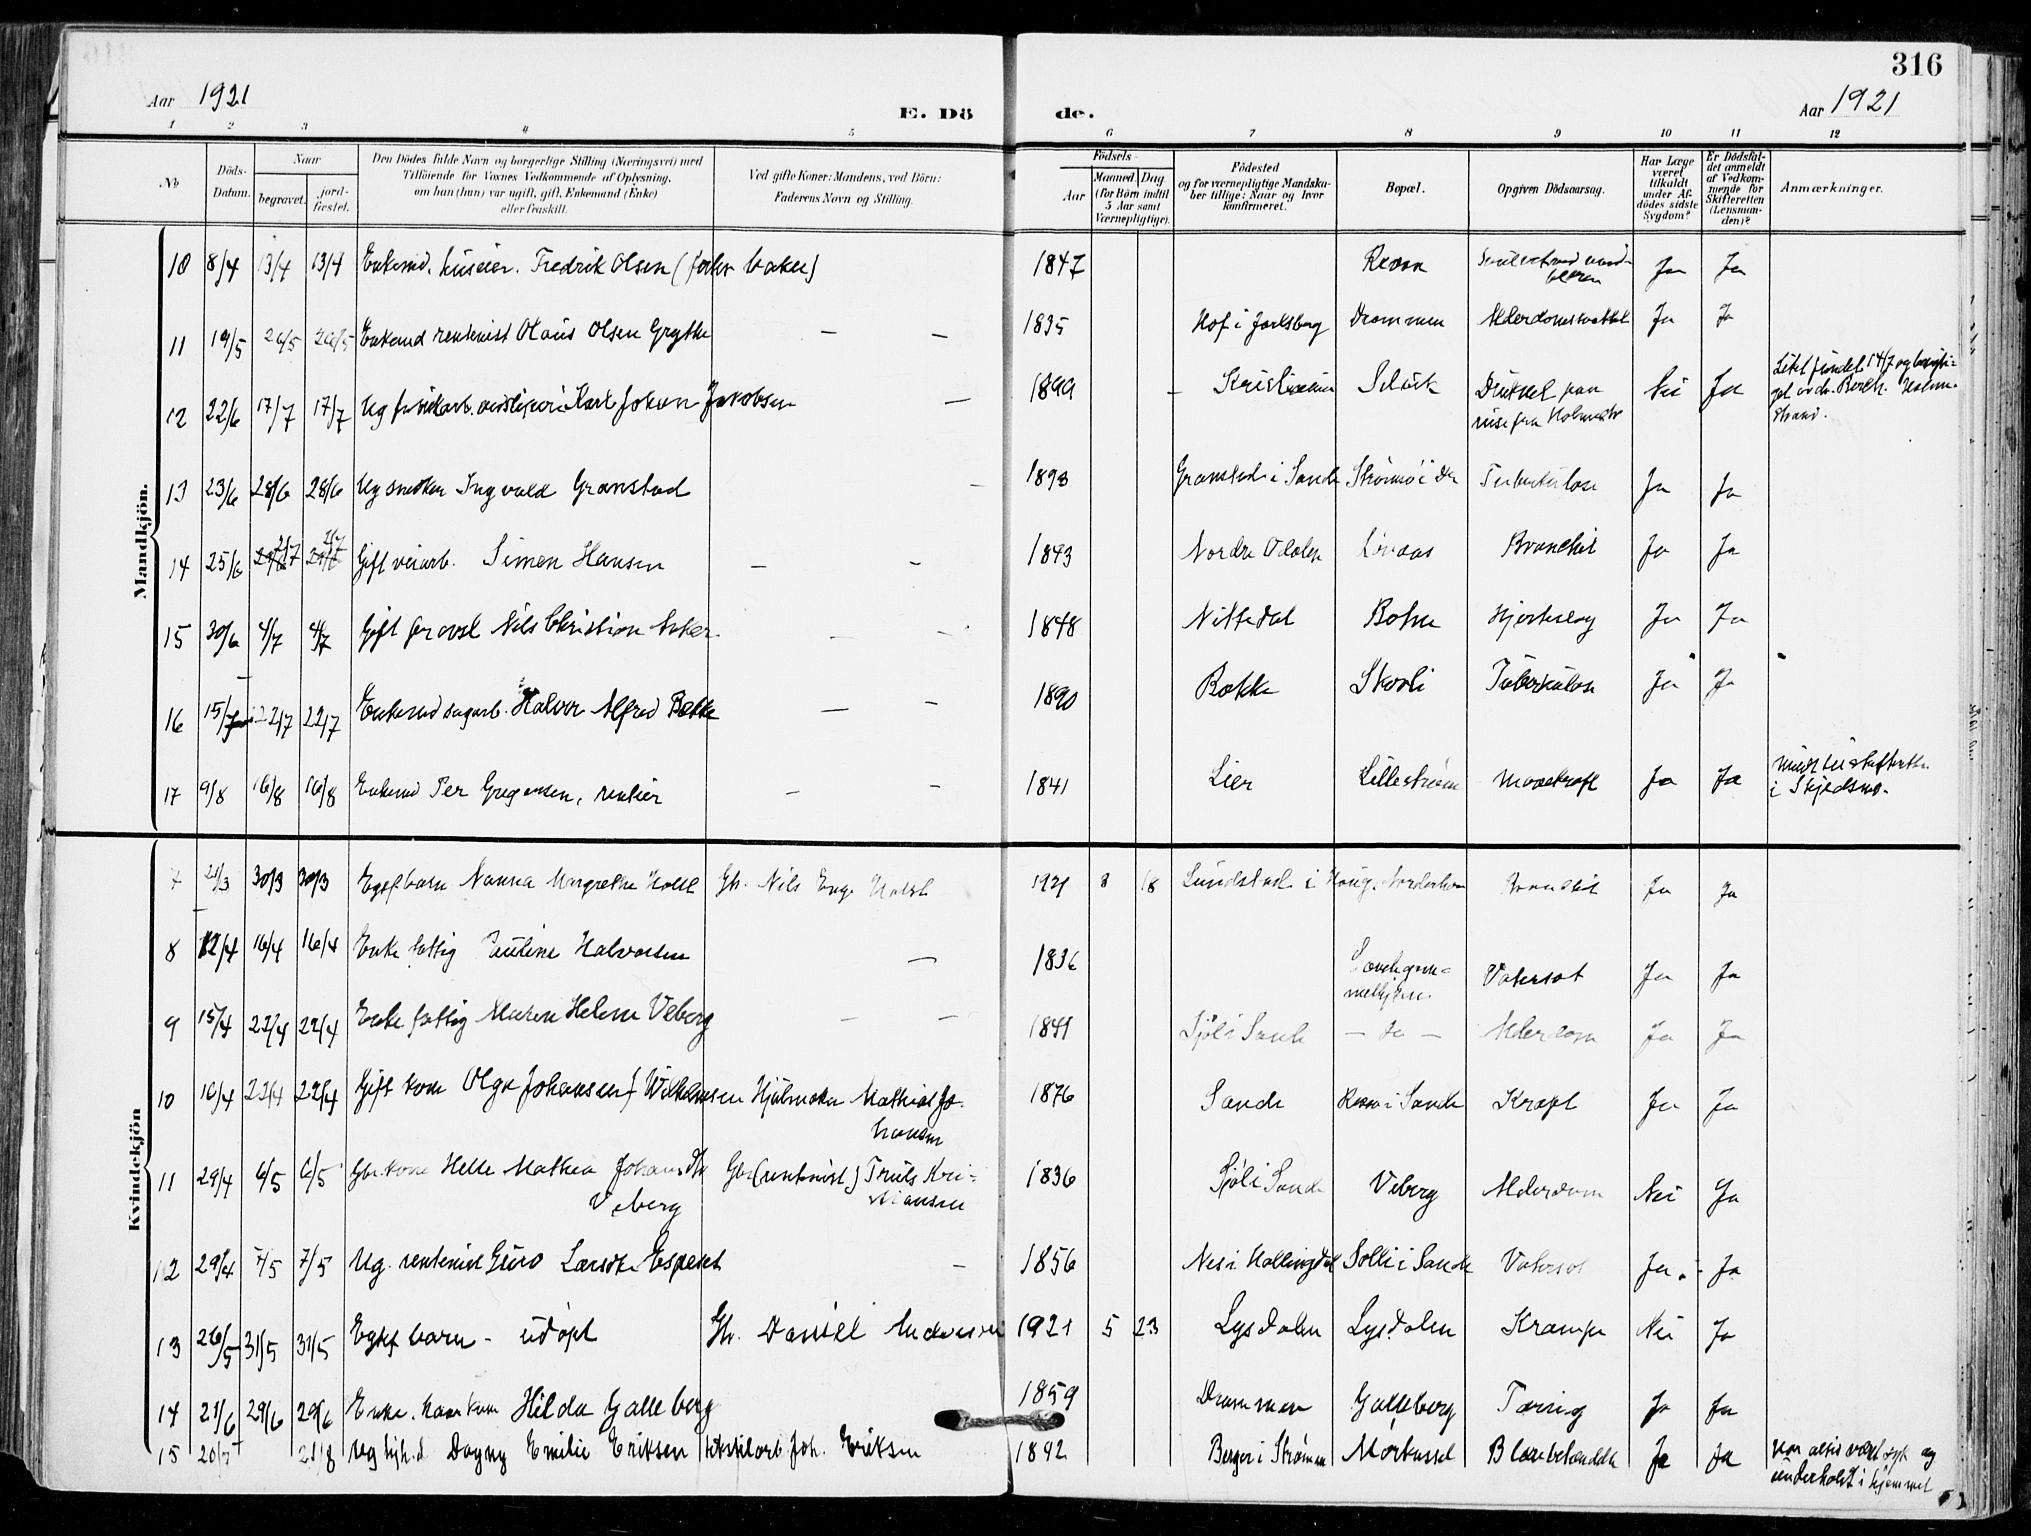 316
Aar 1921
E. Dö
de.
Aar 1921
1 2 3 4 5 6 7 8 9 10 11 12
No
Döds-Datum.
Naar
begravet.
jord-fæstet.
Den Dödes fulde Navn og borgerlige Stilling (Næringsvei) med
Tilföiende for Voxnes Vedkommende af Oplysning,
om han (hun) var ugift, gift, Enkemand (Enke)
eller fraskilt.
Ved gifte Koner: Mandens, ved Börn:
Faderens Navn og Stilling.
Födsels-
Aar
Maaned Dag
(for Börn indtil
5 Aar samt
Værnepligtige).
Födested
og for værnepligtige Mandska-
ber tillige: Naar og hvor
konfirmeret.
Bopæl.
Opgiven Dödsaarsag.
Har Læge
været
tilkaldt
under Af-
dödes sidste
Sygdom?
Er Dödsfal-
det anmeldt
af Vedkom-
mende for
Skifteretten
(Lensman-
den)?
Anmærkninger.
Mandkjön.
10 8/4 13/4 13/4 Enkemd. huseier. Fredrik Olsen 1847 Ja Ja
11 19/5 26/5 26/5 Enkemd rentenist Olaus Olsen Grytte — — 1835 Hof i Jarlsberg Drammen Ja Ja
12 22/6 17/7 17/7 Ug Karl Johan Jakobsen — 1899 - Kristiania Selvik Druknet paa Nei Ja
reise fra
Liket fundet 14/7 og
strand.
13 23/6 28/6 28/6 Ug snekker Ingvald Granstad 1893 Granstad i Sande Strömsö i Dr Tuberkulose Ja Ja
14 25/6 Gift veiarb. Simen Hansen — - 1843 Nordre Odalen Bronchit Ja Ja
15 30/6 4/7 4/7 Gift Nils Christian Aker — — 1848 Nittedal Hjerteslag Ja Ja
16 15/7 22/7 22/7 Enkemd sagarb. Halvor Alfred Bekke — - 1890 Bekke Skovli Tuberkulose Ja Ja
17 9/8 16/8 16/8 Enkemd Per Gregersen, rentier — — 1841 Lier Lillestrøm Mavekræft Ja Ja
i Skjedsmo.
Kvindekjön
7 21/3 30/3 30/3 Egtef barn Nanna Margrethe Holst Gb. Nils Holst 1921 3 18 Lundstad i Haug, Norderhov Bronchit Ja Ja
8 12/4 16/4 16/4 Enke fattig Pauline Halvorsen — 1836 Vatersot Ja Ja
9 15/4 22/4 22/4 Enke fattig Maren Helene Veberg — — 1841 Sjöl i Sande — do — Alderdom Ja Ja
10 16/4 22/4 22/4 Gift kone Olga Johansen f Wilhelmsen Hjulmaker Mathias Jo-
hansen
1876 Sande i Sande Kræft Ja Ja
11 29/4 6/5 6/5 Gbr. kone Helle Mathea Johansdtr Gbr (rentenist) Truls Kri-
Veberg stiansen
1836 Sjöl i Sande Veberg Alderdom Nei Ja
12 29/4 7/5 7/5 Ug. rentenist Guro Larsdtr Espeset — 1856 Nes i Hallingdal Solli i Sande Vatersot Ja Ja
13 26/5 31/5 31/5 Egtef barn - udøpt Gb. Daniel Andersen 1921 5 23 Lysdalen Lysdalen Krampe Nei Ja
14 21/6 29/6 29/6 Enke. Hilda Galleberg 1859 Drammen Galleberg Tæring Ja Ja
15 20/7 21/8 Ug hjh.d. Dagny Emilie Eriksen Joh. Eriksen 1892 Berger i Strømm Ja Ja
har altid været syk og
underholdt i hjemmet